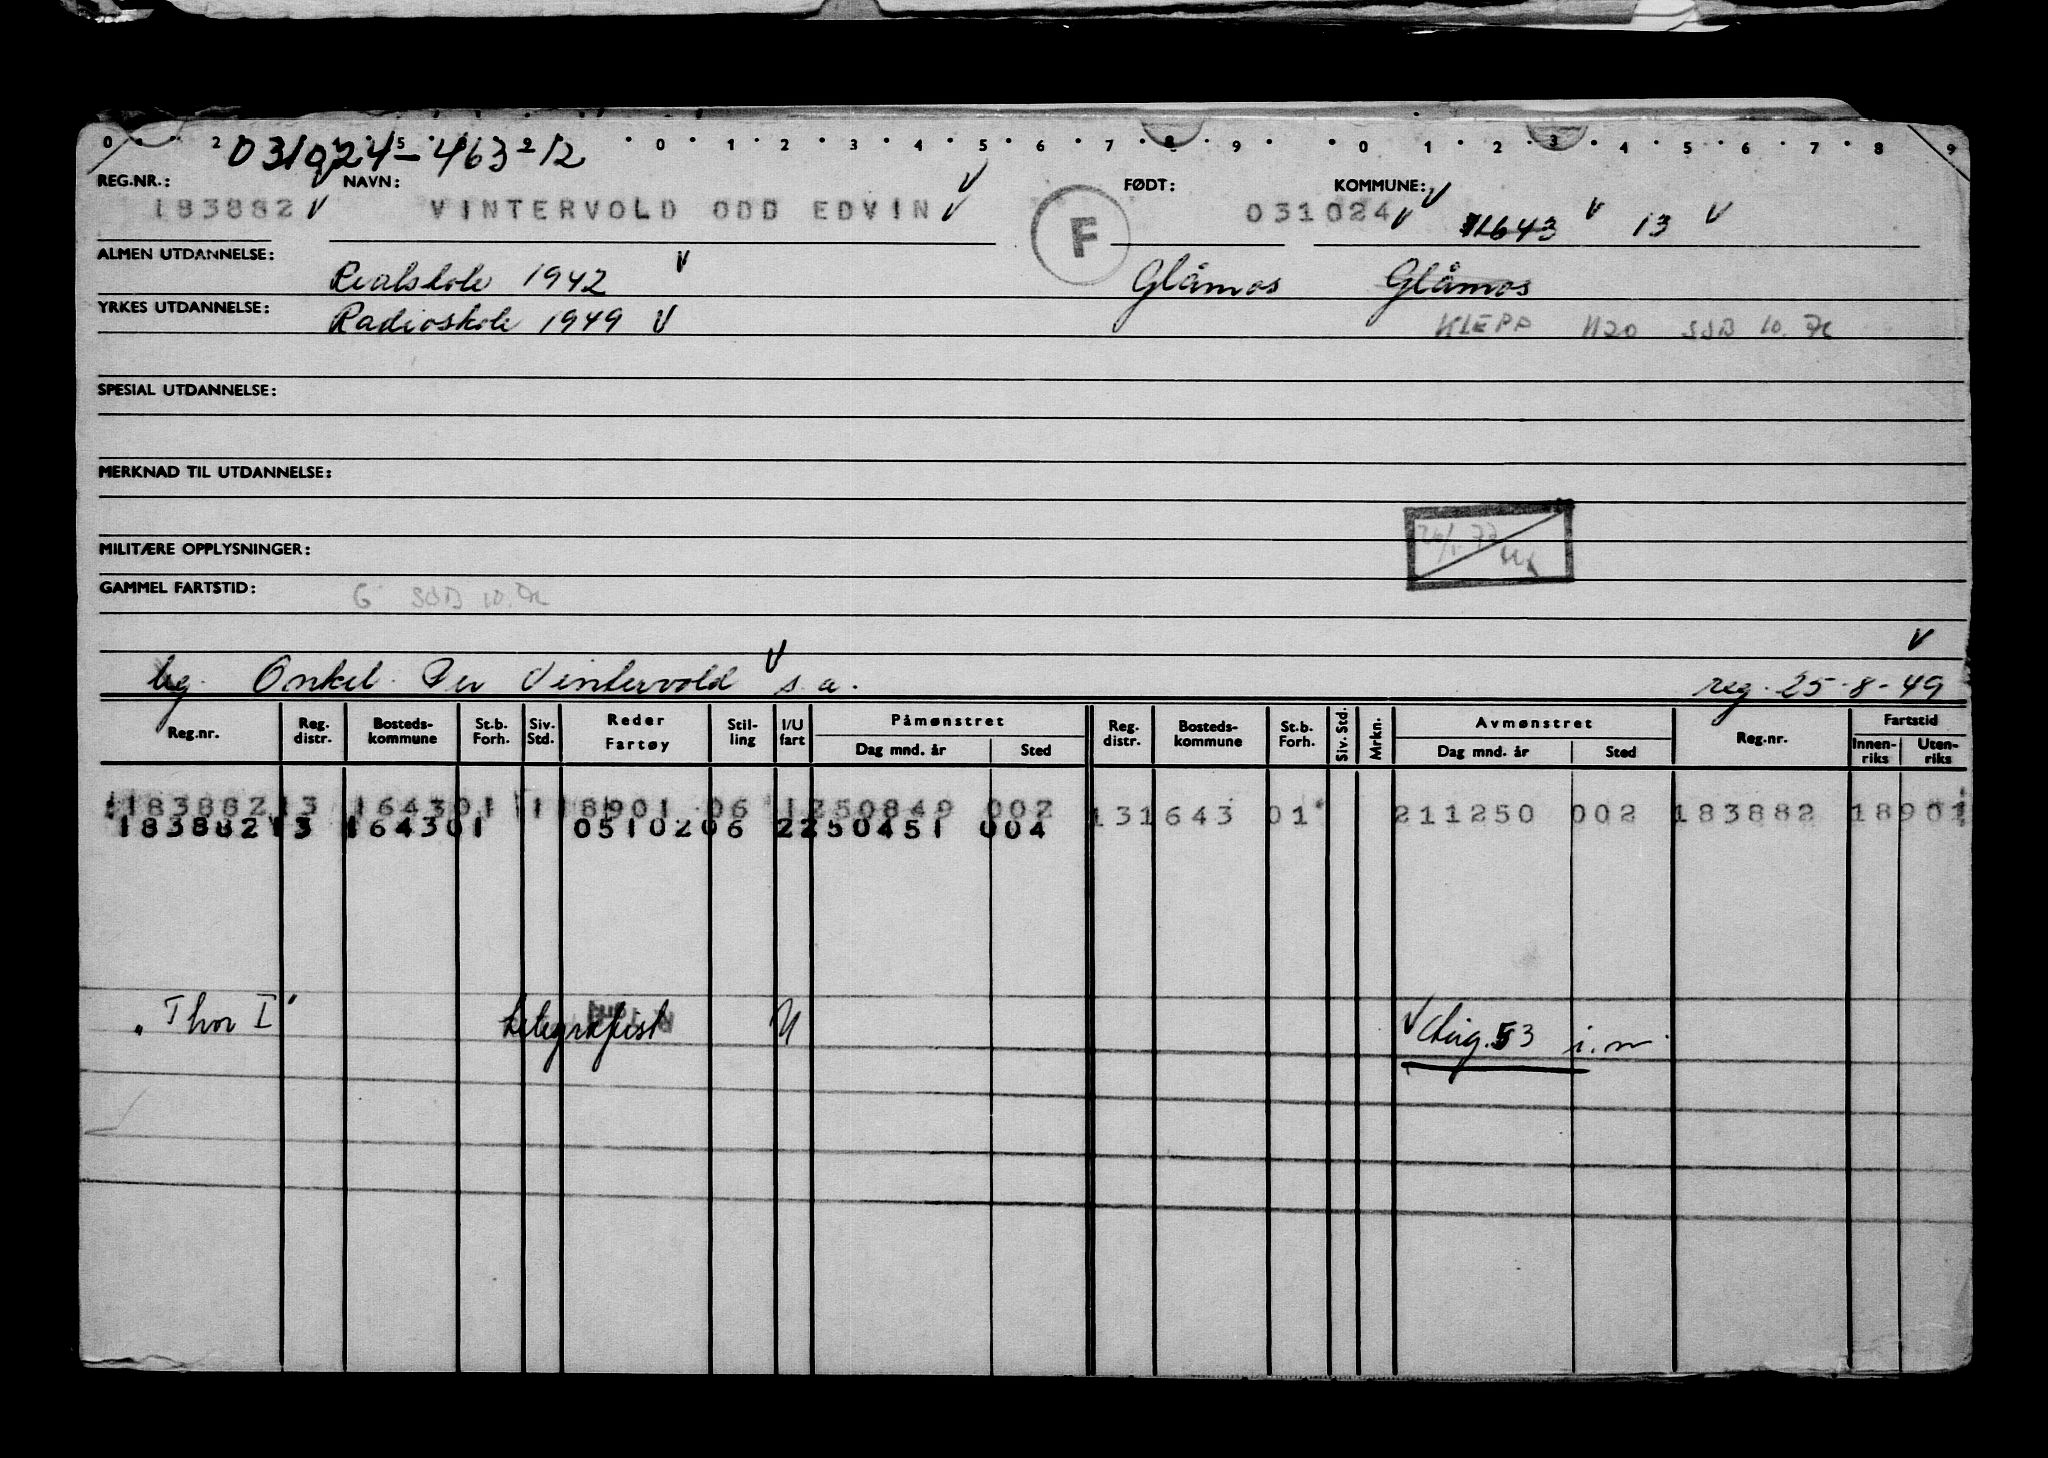 0 2 5 0 1 2 3 4 5 6 7 8 9 0 1 2 3 4 5 6 7 8 9
031024-463 212
REG.NR.: NAVN: FØDT: KOMMUNE:
183882 V VINTERVOLD ODD EDVIN V F 031024 V 1643 V 13 V
ALMEN UTDANNELSE: Realskole 1942 V Glåmos Glåmos
YRKES UTDANNELSE: Radioskole 1949 V KLEPP 1120 SSB 10.
SPESIAL UTDANNELSE:
MERKNAD TIL UTDANNELSE:
MILITÆRE OPPLYSNINGER:
GAMMEL FARTSTID: G SSB 10.
Onkel Per Vintervold s.a. V reg. 25-8-49
Reg.nr. Reg. distr. Bosteds- kommune St.b. Forh. Siv. Std. Reder Fartøy Stil- ling I/U fart Påmønstret Dag mnd. år Sted Reg. distr. Bosteds- kommune St.b. Forh. Siv. Std. Mrkn. Avmønstret Dag mnd. år Sted Reg.nr. Fartstid Innen- riks Uten- riks
183882 13 1643 01 1 18901 06 1 250849 002 13 1643 01 211250 002 183882 18901
183882 13 1643 01 05102 06 2 250451 004
"Thor I" telegrafist U V Aug. 53 i.m.